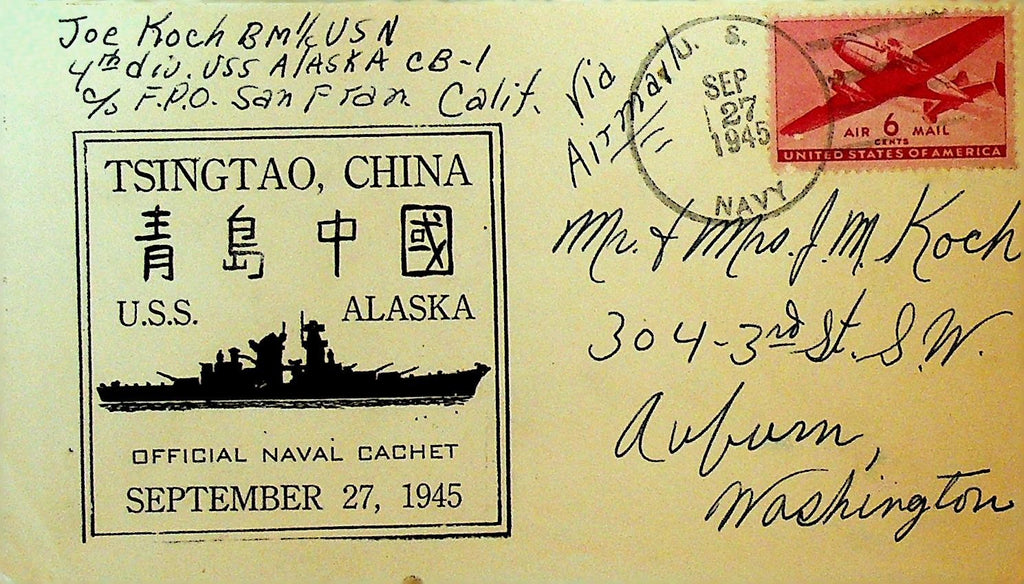 Joe Koch BM1/c USN
4th div. USS ALASKA CB-1
c/o F.P.O. San Fran. Calif.
Via
Airmail
U. S.
SEP
27
1945
NAVY
AIR 6 MAIL
CENTS
UNITED STATES OF AMERICA
TSINGTAO, CHINA
青島中國
U.S.S. ALASKA
OFFICIAL NAVAL CACHET
SEPTEMBER 27, 1945
Mr. & Mrs. J. M. Koch
304-3rd St. S.W.
Auburn,
Washington